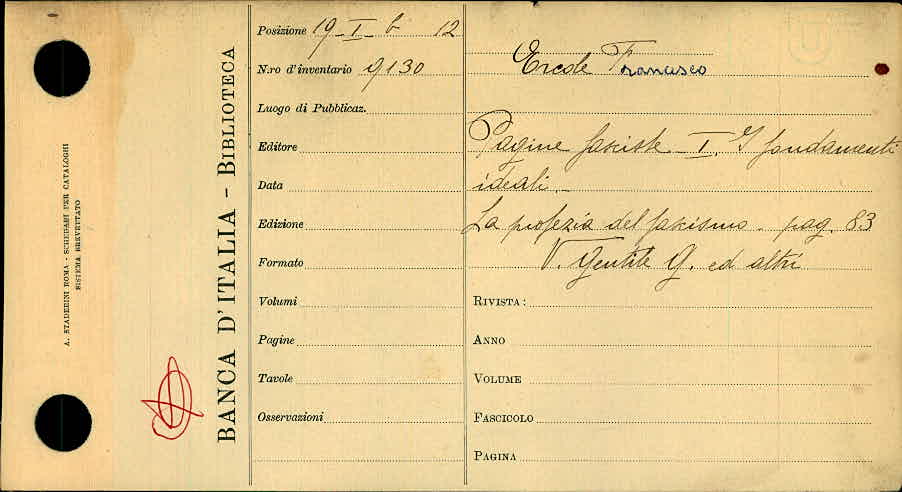 A. STADERINI ROMA - SCHEDARI PER CATALOGHI
SISTEMA BREVETTATO
BANCA D'ITALIA - BIBLIOTECA
Posizione 19-I-b 12
N.ro d'inventario 9130
Luogo di Pubblicaz.
Editore
Data
Edizione
Formato
Volumi
Pagine
Tavole
Osservazioni
Ercole Francesco
Pagine fasciste - I. I fondamenti
ideali.-
La profezia del fascismo. pag. 83
V. Gentile G. ed altri
RIVISTA:
ANNO
VOLUME
FASCICOLO
PAGINA